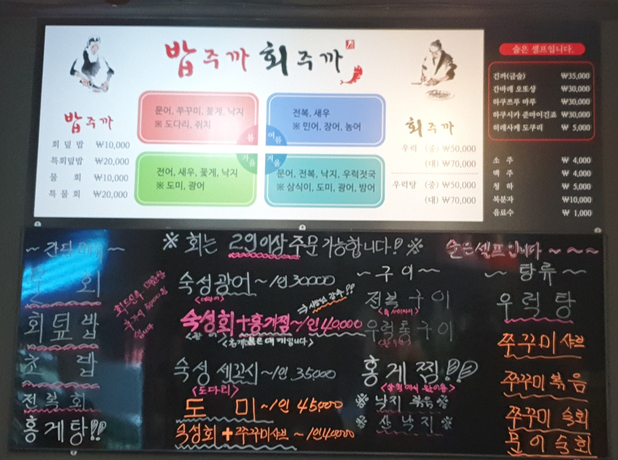 밥주까 회주까
문어, 쭈꾸미, 꽃게, 낙지
※ 도다리, 쥐치
봄
전복, 새우
※ 민어, 장어, 농어
여름
전어, 새우, 꽃게, 낙지
※ 도미, 광어
가을
문어, 전복, 낙지, 우럭젓국
※ 삼식이, 도미, 광어, 방어
겨울
밥주까
회덮밥 ₩10,000
특회덮밥 ₩20,000
물회 ₩10,000
특물회 ₩20,000
회주까
우럭 (중) ₩50,000
(대) ₩70,000
우럭탕 (중) ₩50,000
(대) ₩70,000
술은 셀프입니다.
간파(금술) ₩35,000
간바레 오또상 ₩30,000
하쿠쯔루 마루 ₩30,000
하쿠시카 준마이긴죠 ₩30,000
히레사케 도쿠리 ₩5,000
소주 ₩4,000
맥주 ₩4,000
청하 ₩5,000
복분자 ₩10,000
음료수 ₩1,000
물회
회덮밥
초밥
전복회
홍게탕!!
※ 회는 2인이상 주문 가능합니다! ※
숙성광어~1인 30000
숙성회+홍게찜~1인 40,000
숙성 세꼬시~1인 35,000
<도다리>
도미~1인 45000
숙성회+쭈꾸미샤브~1인 40000
~구이~
전복구이
우럭통구이
홍게찜!!
※ 낙지 볶음 ※
※ 산낙지 ※
술은셀프입니다~
~탕류~
우럭탕
쭈꾸미샤브
쭈꾸미볶음
쭈꾸미숙회
문어숙회